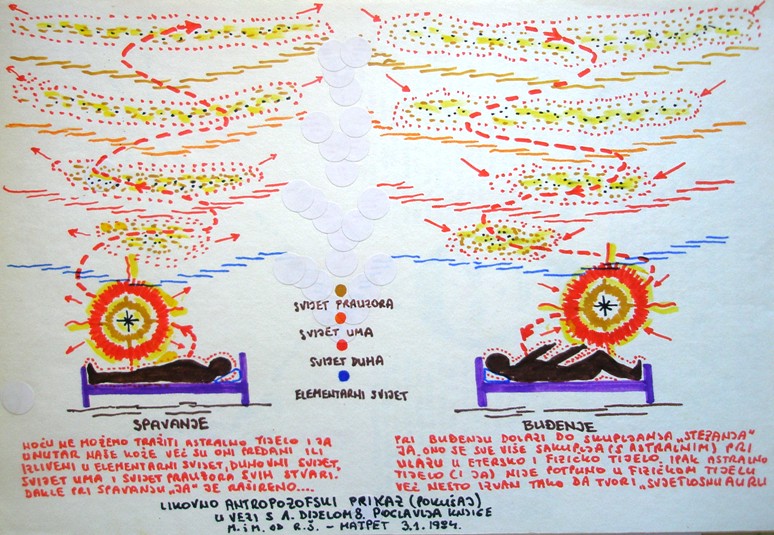 SVIJET PRAUZORA
SVIJET UMA
SVIJET DUHA
ELEMENTARNI SVIJET
SPAVANJE
NOĆU NE MOŽEMO TRAŽITI ASTRALNO TIJELO I JA
UNUTAR NAŠE KOŽE VEĆ SU ONI PREDANI ILI
IZLIVENI U ELEMENTARNI SVIJET, DUHOVNI SVIJET,
SVIJET UMA I SVIJET PRAUZORA SVIH STVARI.
DAKLE PRI SPAVANJU „JA" JE RAŠIRENO...
BUĐENJE
PRI BUĐENJU DOLAZI DO SKUPLJANJA „STEZANJA"
JA. ONO SE SVE VIŠE SAKUPLJA (S ASTRALNIM) PRI
ULASKU U ETERSKO I FIZIČKO TIJELO. IPAK ASTRALNO
TIJELO (I JA) NIJE POTPUNO U FIZIČKOM TIJELU
VEĆ NEŠTO IZVAN TAKO DA TVORI „SVJETLOSNU AURU
LIKOVNO ANTROPOZOFSKI PRIKAZ (POKUŠAJ)
U VEZI S 1. DIJELOM 8. POGLAVLJA KNJIGE
M. I M. OD R.Š. - MATPET 3.1.1984.